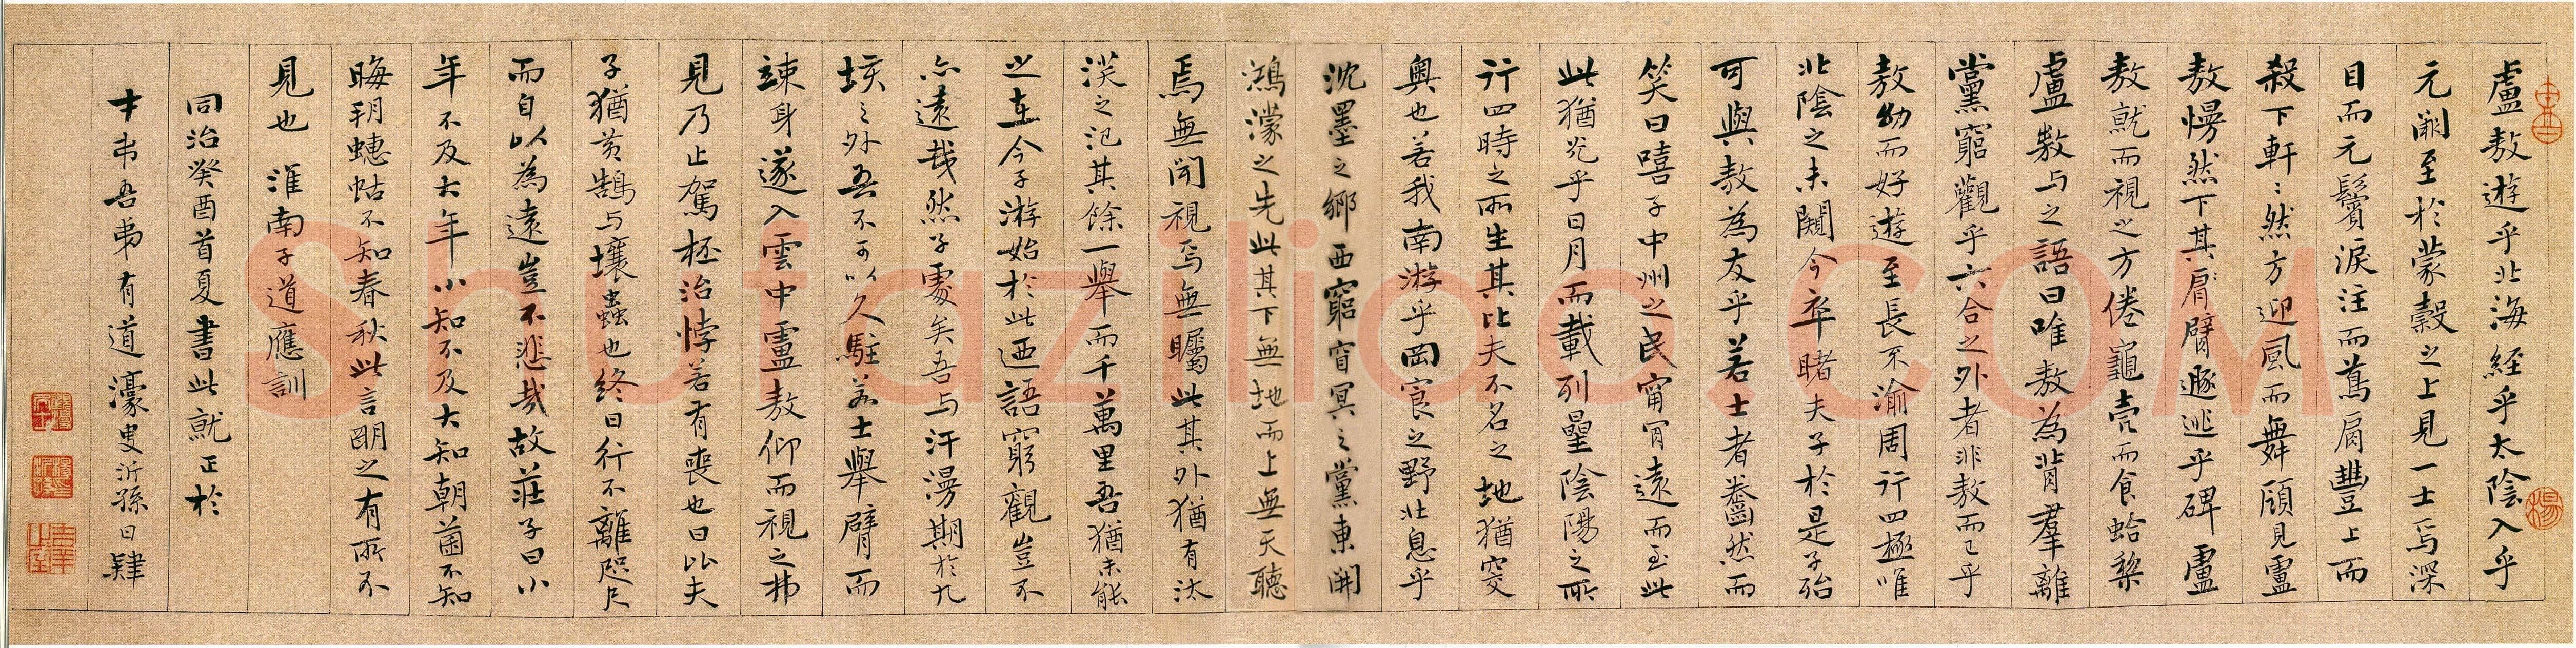 盧敖遊乎北海經乎太陰入乎
元闕至於蒙穀之上見一士焉深
目而元鬢淚注而鳶肩豐上而
殺下軒〻然方迎風而舞顧見盧
敖慢然下其肩臂遯逃乎碑盧
敖就而視之方倦龜壳而食蛤棃
盧敖与之語曰唯敖為背羣離
黨窮觀乎六合之外者非敖而已乎
敖幼而好遊至長不渝周行四極唯
北陰之未闚今卒睹夫子於是子殆
可與敖為友乎若士者齤然而
笑曰嘻子中州之民甯肎遠而至此
此猶光乎日月而載列星陰陽之所
行四時之所生其比夫不名之地猶窔
奧也若我南游乎岡㝗之野北息乎
沈墨之鄉西窮窅冥之黨東開
鴻濛之先此其下無地而上無天聽
焉無聞視焉無矚此其外猶有汰
沃之汜其餘一舉而千萬里吾猶未能
之在今子游始於此迺語窮觀豈不
亦遠哉然子處矣吾与汗漫期於九
垓之外吾不可以久駐若士舉臂而
竦身遂入雲中盧敖仰而視之弗
見乃止駕柸治悖若有喪也曰比夫
子猶黄鵠与壤蟲也終日行不離咫尺
而自以為遠豈不悲哉故莊子曰小
年不及大年小知不及大知朝菌不知
晦朔蟪蛄不知春秋此言明之有所不
見也 淮南子道應訓
同治癸酉首夏書此就正於
才弟吾弟有道 濠叟沂孫日肄
Shufaziliao.COM
楊